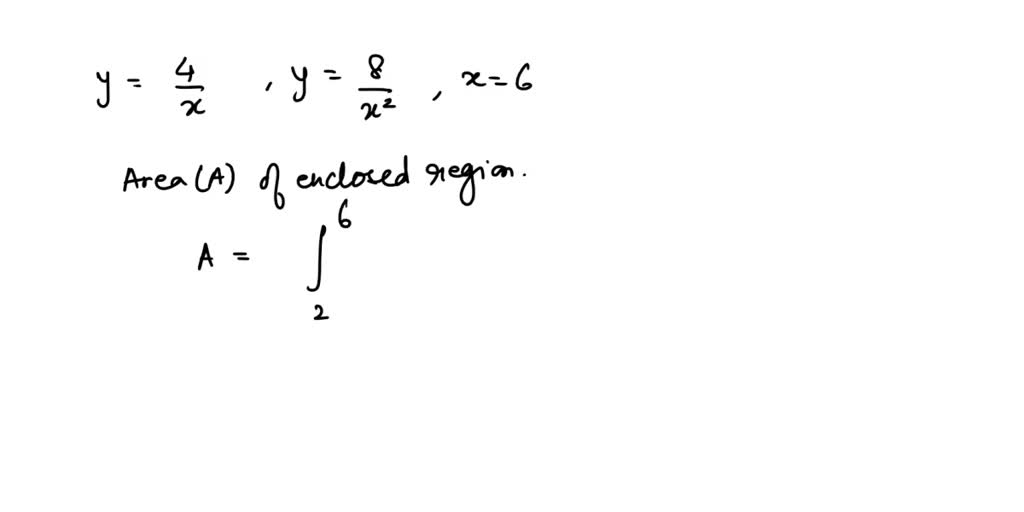 y = 4/x , y = 8/x² , x = 6
Area (A) of enclosed region.
A = ∫₂⁶